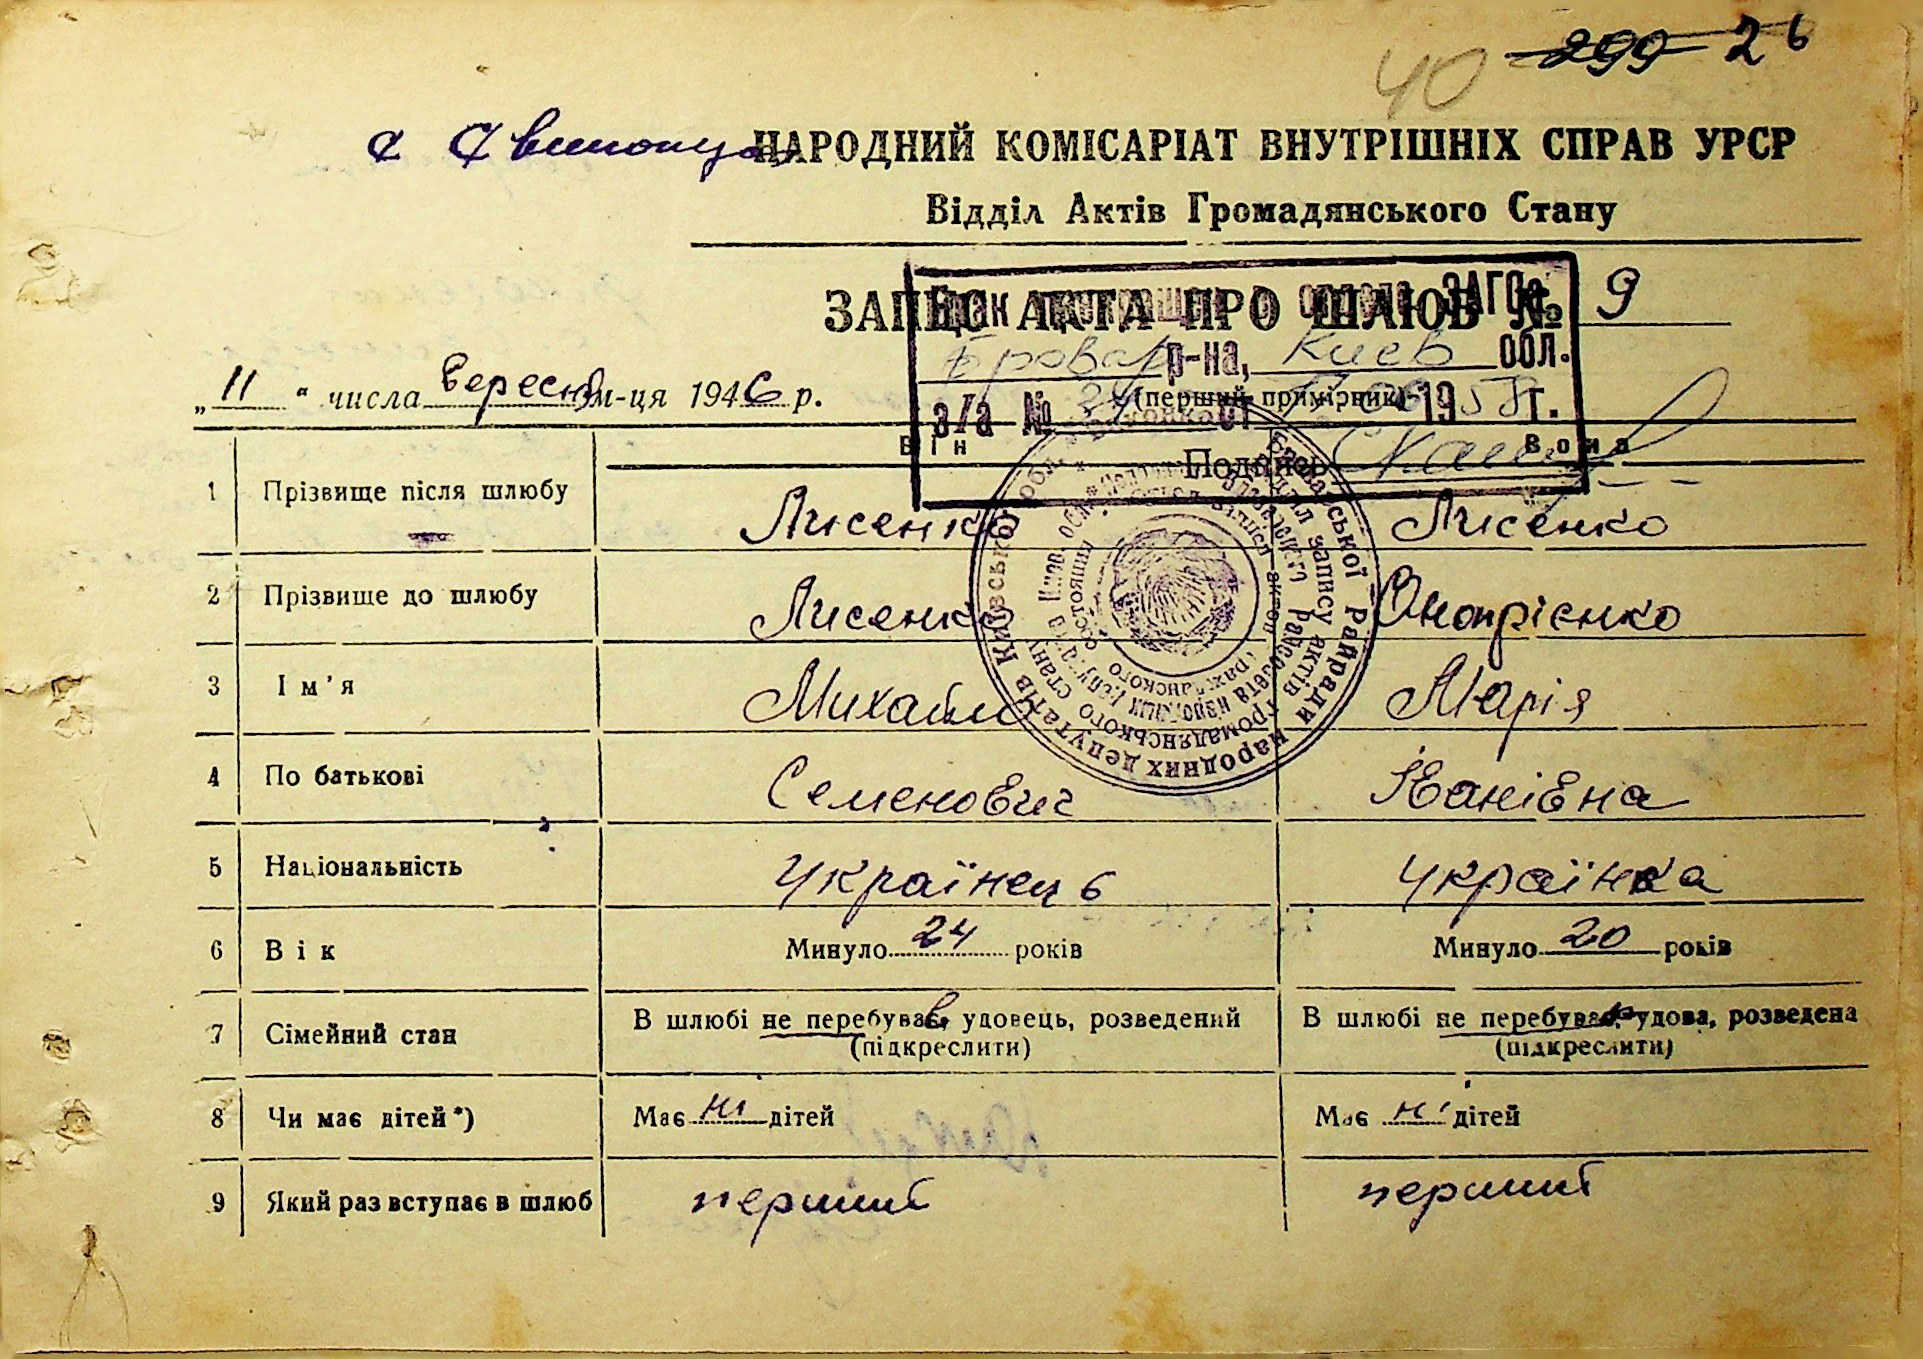 40 299 26
НАРОДНИЙ КОМІСАРІАТ ВНУТРІШНІХ СПРАВ УРСР
Відділ Актів Громадянського Стану
ЗАПИС АКТА ПРО ШЛЮБ № 9
Брак ЗАГСа
Бровар р-на, Киев обл.
з/а № 24 от 1958 г.
Подпись
„11“ числа вересня м-ця 1946 р.
(перший примірник)
Він Вона
1 Прізвище після шлюбу Лисенко Лисенко
2 Прізвище до шлюбу Лисенко Онопрієнко
3 Ім'я Михайло Марія
4 По батькові Семенович Іванівна
5 Національність українець українка
6 Вік Минуло 24 років Минуло 20 років
7 Сімейний стан В шлюбі не перебував, удовець, розведений В шлюбі не перебувала, удова, розведена
(підкреслити) (підкреслити)
8 Чи має дітей*) Має ні дітей Має ні дітей
9 Який раз вступає в шлюб перший перший
Райради народних депутатів Київської обл.
Відділ запису актів громадянського стану